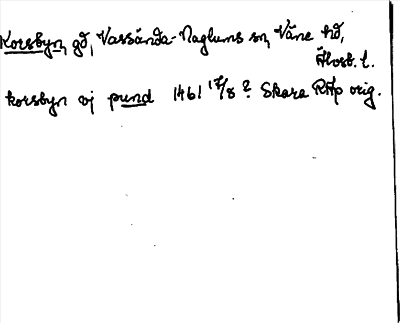 Korsbyn, gd, Vassända-Naglums sn, Väne hd,
Älvsb. l.
korsbyn vj pund 1461 17/8 ? Skara RAp orig.